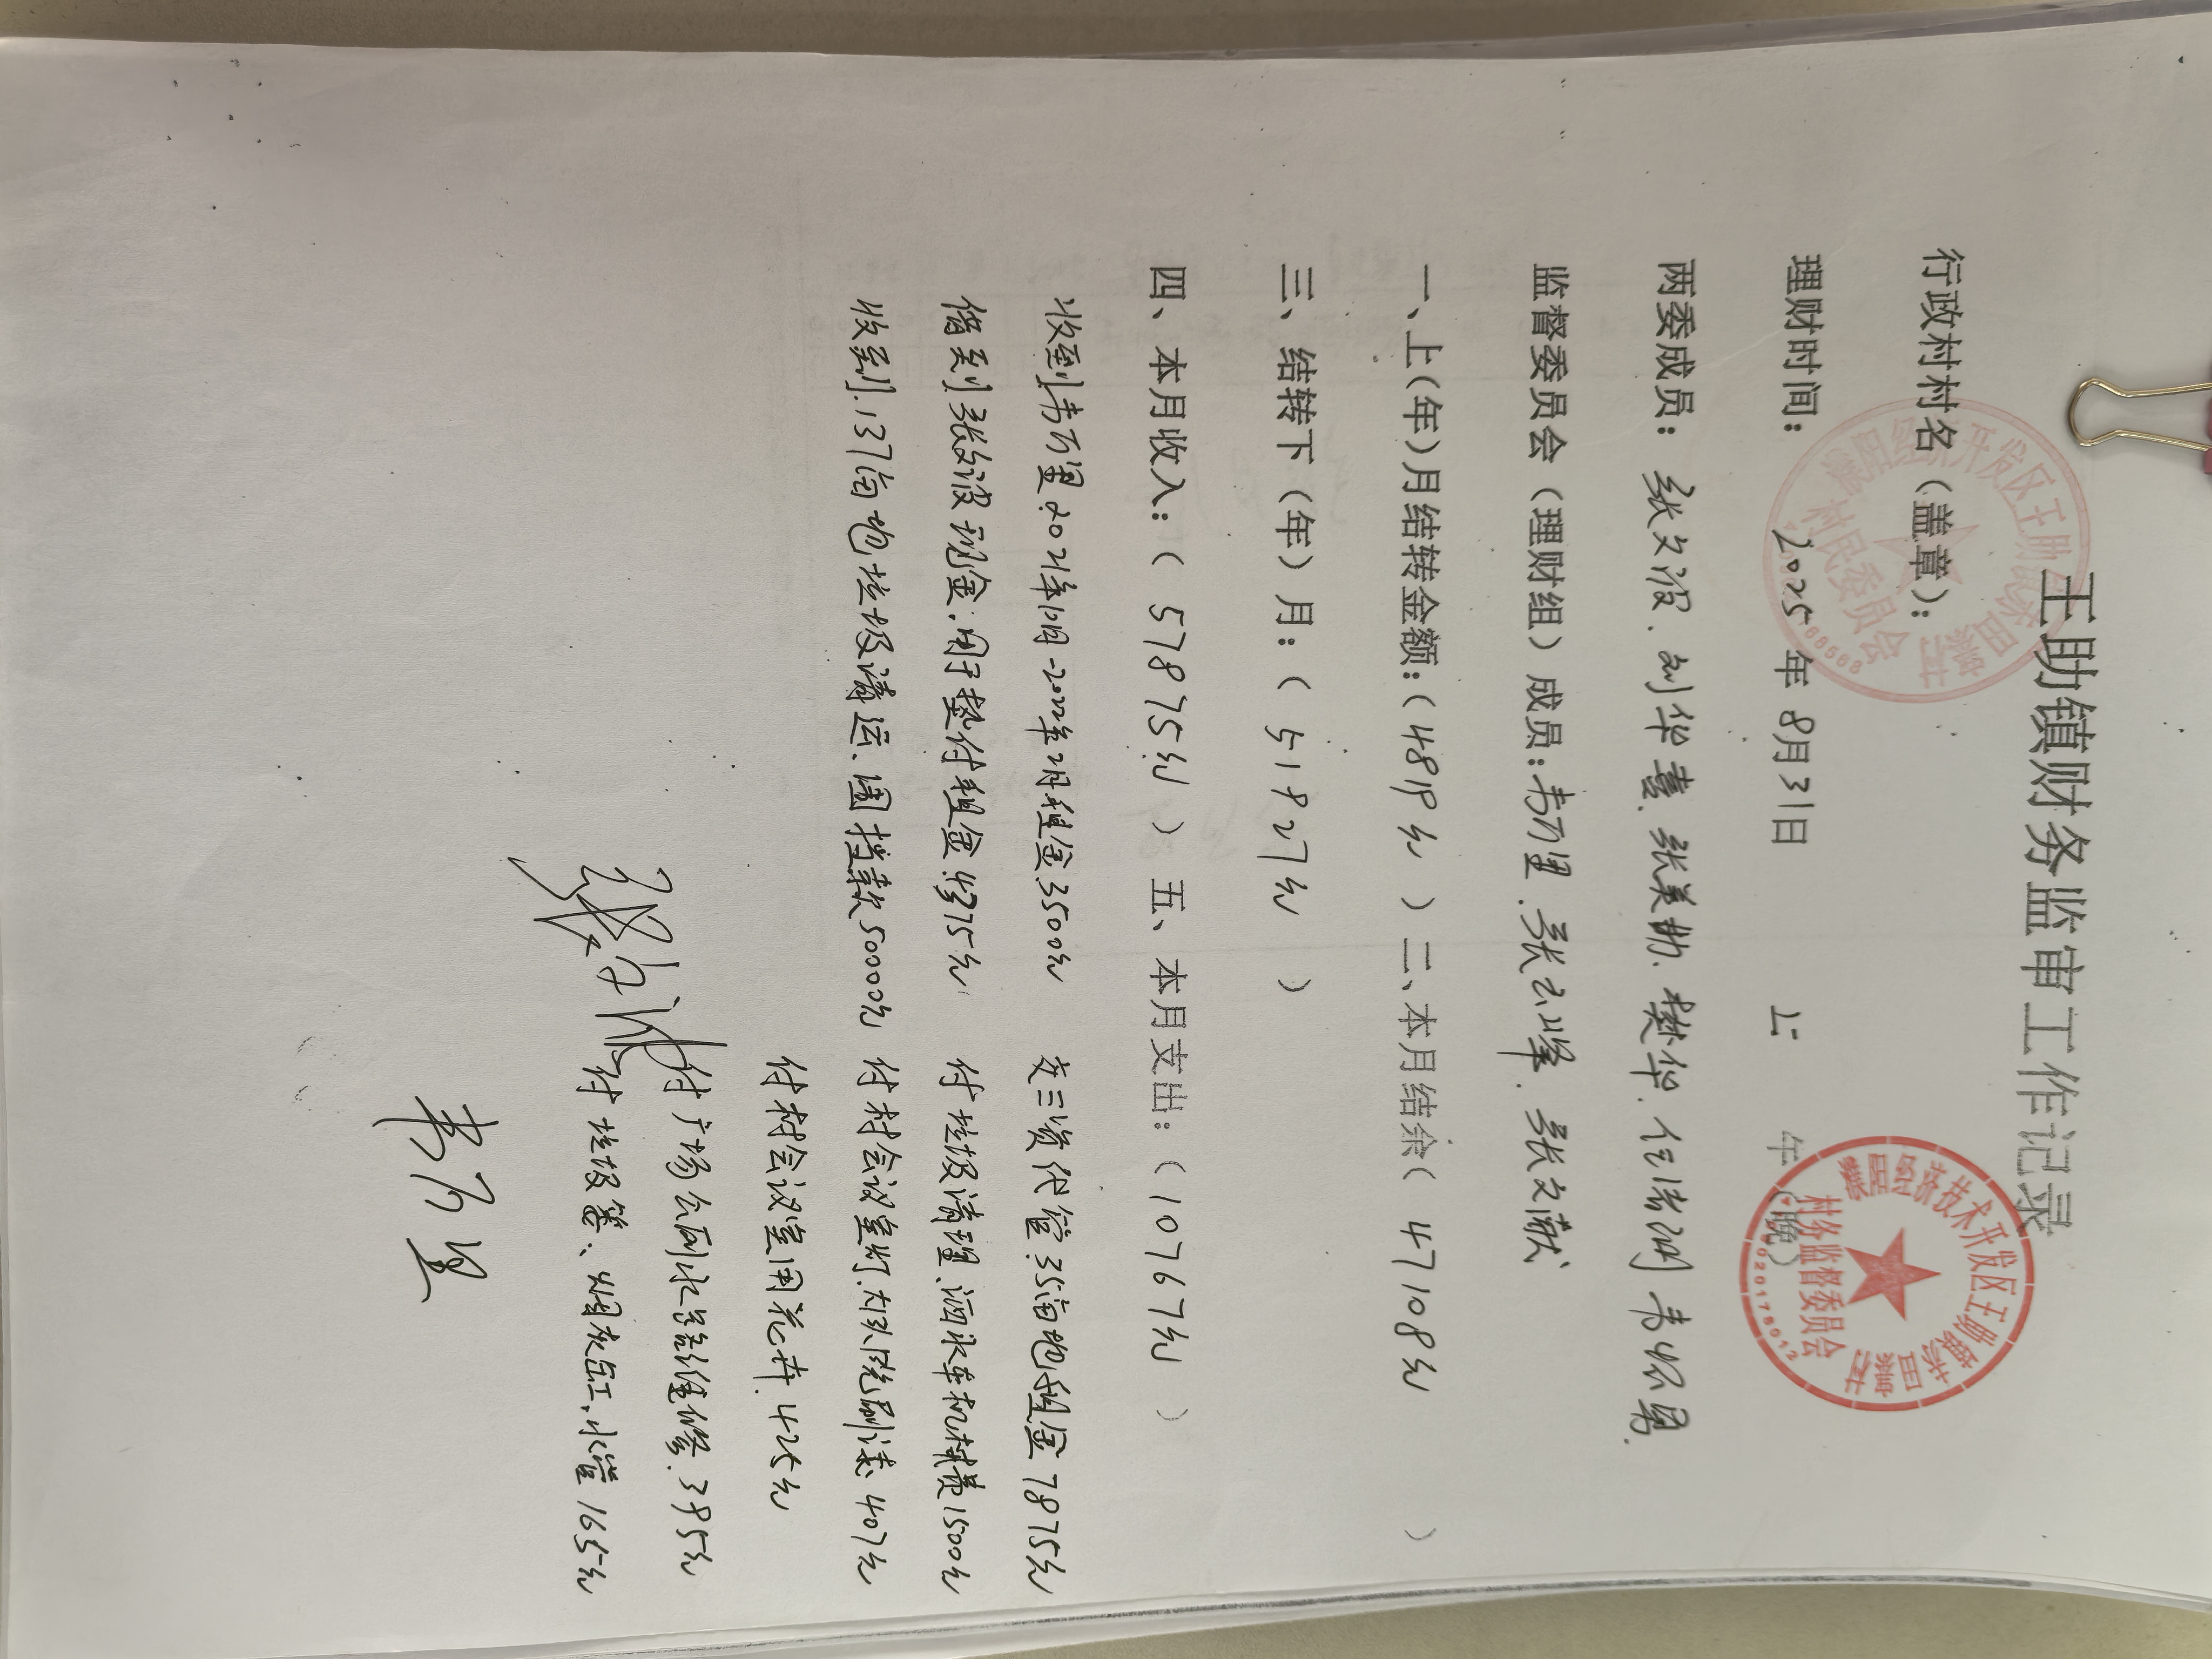 王助镇财务监审工作记录
行政村村名（盖章）：
理财时间： 2025 年 8月31日 上 午（晚）
两委成员：张文波、刘华喜、张美勤、樊华、任清朋 韦怀勇
监督委员会（理财组）成员：韦万里、张云峰、张文献
一、上(年)月结转金额:（4819元）二、本月结余（47108元）
三、结转下（年）月：（51927元）
四、本月收入：（57875元）五、本月支出：（10767元）
收到韦万里2021年 -2022年2月租金3500元 交三资代管35亩地租金7875元
借到张文波现金.用于垫付租金4375元 付垃圾清理、洒水车机械费1500元
收到137亩地垃圾清运、围挡款50000元 付村会议室灯.大队院刷漆407元
付村会议室用花卉.425元
付广场公厕水管维修.395元
付垃圾篓、烟灰缸.水管165元
张文波
韦万里
濮阳经济技术开发区王助镇
村民委员会
濮阳经济技术开发区王助镇
村务监督委员会